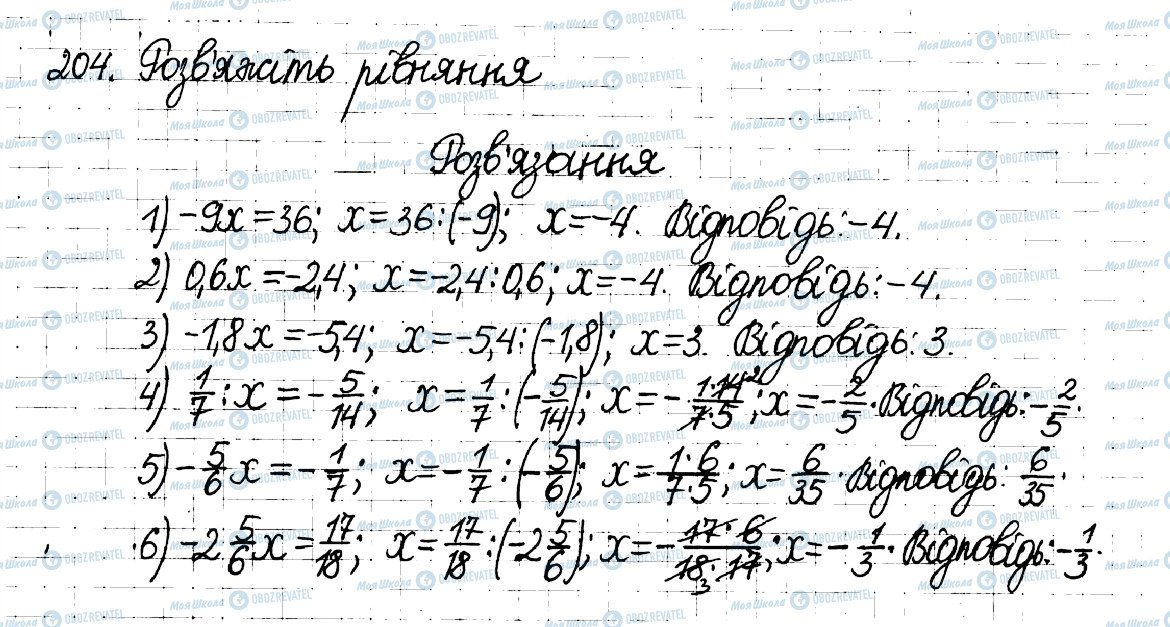 204. Розв'яжіть рівняння
Розв'язання
1) -9x=36; x=36:(-9); x=-4. Відповідь:-4.
2) 0,6x=-2,4; x=-2,4:0,6; x=-4. Відповідь:-4.
3) -1,8x=-5,4; x=-5,4:(-1,8); x=3. Відповідь: 3.
4) 1/7:x=-5/14; x=1/7:(-5/14); x=-1·14 2/7·5; x=-2/5. Відповідь:-2/5.
5) -5/6x=-1/7; x=-1/7:(-5/6); x=1·6/7·5; x=6/35. Відповідь: 6/35.
6) -2 5/6x=17/18; x=17/18:(-2 5/6); x=-17·6/18 3·17; x=-1/3. Відповідь:-1/3.